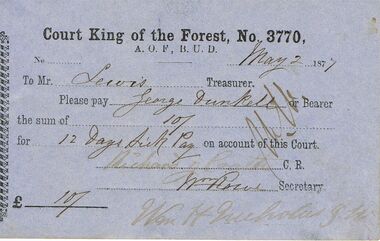 Court King of the Forest, No. 3770,
A. O. F., B. U. D.
No May 2 1877
To Mr. Lewis Treasurer.
Please pay George Dunkell or Bearer
the sum of 10/
for 12 Days Sick Pay on account of this Court.
Richard C. R.
Wm Rowe Secretary.
£ 10/
Wm H Nicholas